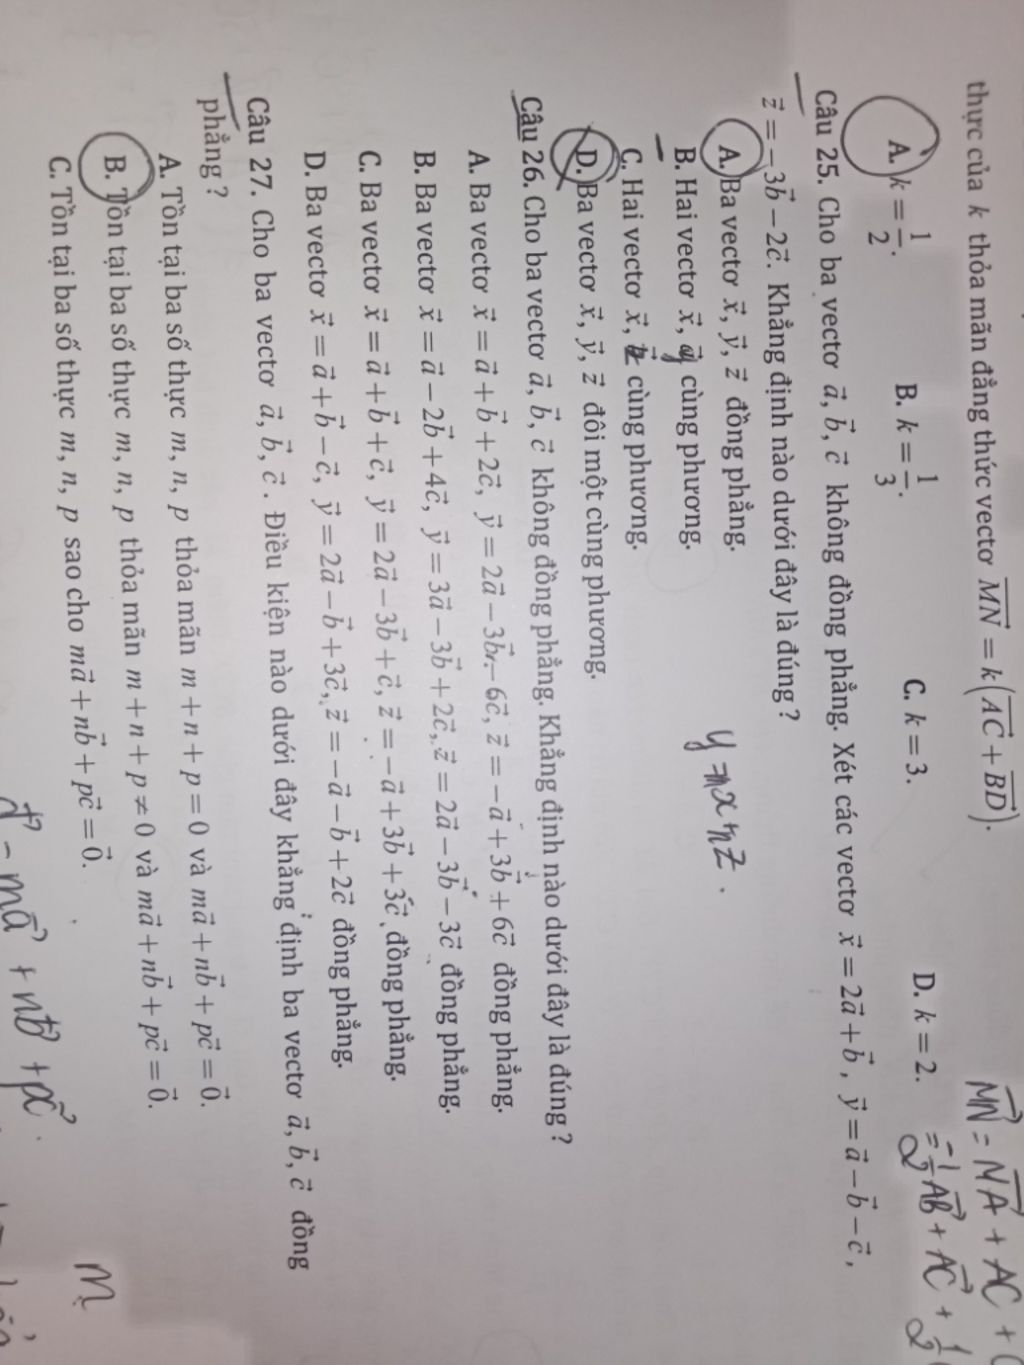 thực của k thỏa mãn đẳng thức vectơ \overrightarrow{MN} = k(\overrightarrow{AC} + \overrightarrow{BD}).
A. k = 1/2. B. k = 1/3. C. k = 3. D. k = 2.
Câu 25. Cho ba vectơ a⃗, b⃗, c⃗ không đồng phẳng. Xét các vectơ x⃗ = 2a⃗ + b⃗, y⃗ = a⃗ − b⃗ − c⃗,
z⃗ = −3b⃗ − 2c⃗. Khẳng định nào dưới đây là đúng?
A. Ba vectơ x⃗, y⃗, z⃗ đồng phẳng.
B. Hai vectơ x⃗, y⃗ cùng phương.
C. Hai vectơ x⃗, z⃗ cùng phương.
D. Ba vectơ x⃗, y⃗, z⃗ đôi một cùng phương.
y = mx + nz.
Câu 26. Cho ba vectơ a⃗, b⃗, c⃗ không đồng phẳng. Khẳng định nào dưới đây là đúng?
A. Ba vectơ x⃗ = a⃗ + b⃗ + 2c⃗, y⃗ = 2a⃗ − 3b⃗ − 6c⃗, z⃗ = −a⃗ + 3b⃗ + 6c⃗ đồng phẳng.
B. Ba vectơ x⃗ = a⃗ − 2b⃗ + 4c⃗, y⃗ = 3a⃗ − 3b⃗ + 2c⃗, z⃗ = 2a⃗ − 3b⃗ − 3c⃗ đồng phẳng.
C. Ba vectơ x⃗ = a⃗ + b⃗ + c⃗, y⃗ = 2a⃗ − 3b⃗ + c⃗, z⃗ = −a⃗ + 3b⃗ + 3c⃗ đồng phẳng.
D. Ba vectơ x⃗ = a⃗ + b⃗ − c⃗, y⃗ = 2a⃗ − b⃗ + 3c⃗, z⃗ = −a⃗ − b⃗ + 2c⃗ đồng phẳng.
Câu 27. Cho ba vectơ a⃗, b⃗, c⃗. Điều kiện nào dưới đây khẳng định ba vectơ a⃗, b⃗, c⃗ đồng
phẳng?
A. Tồn tại ba số thực m, n, p thỏa mãn m + n + p = 0 và ma⃗ + nb⃗ + pc⃗ = 0⃗.
B. Tồn tại ba số thực m, n, p thỏa mãn m + n + p ≠ 0 và ma⃗ + nb⃗ + pc⃗ = 0⃗.
C. Tồn tại ba số thực m, n, p sao cho ma⃗ + nb⃗ + pc⃗ = 0⃗.
d⃗ = ma⃗ + nb⃗ + pc⃗.